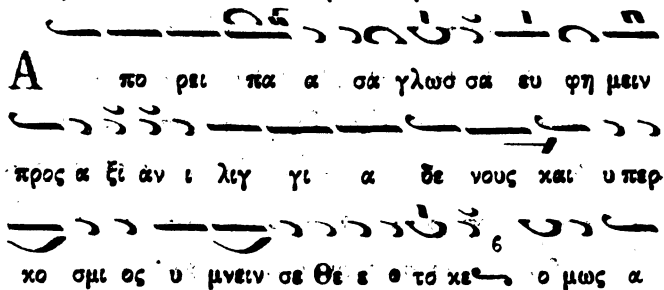 Α πο ρει πα α σα γλωσ σα ευ φη μειν
προς α ξι αν ι λιγ γι α δε νους και υ περ
κο σμι ος υ μνειν σε Θε ε ο το κε ο μως α